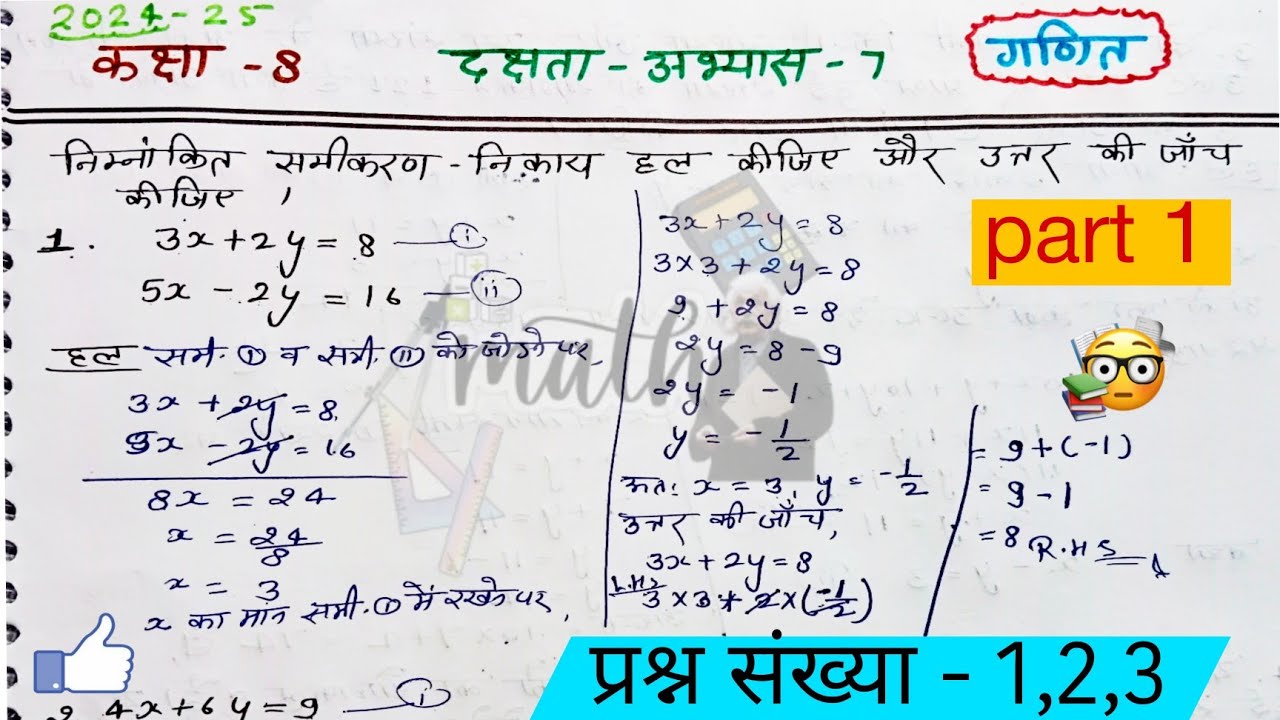 2024-25
कक्षा - 8
दक्षता - अभ्यास - 7
गणित
निम्नांकित समीकरण - निकाय हल कीजिए और उत्तर की जाँच
कीजिए ,
1. 3x + 2y = 8 —(i)
5x - 2y = 16 —(ii)
हल समी. (i) व समी. (ii) को जोडने पर,
3x + 2y = 8
5x - 2y = 16
8x = 24
x = 24/8
x = 3
x का मान समी. (i) में रखने पर,
2 4x + 6y = 9 —(i)
3x + 2y = 8
3 x 3 + 2y = 8
9 + 2y = 8
2y = 8 - 9
2y = -1
y = -1/2
अतः x = 3, y = -1/2
उत्तर की जाँच,
3x + 2y = 8
L.H.S 3 x 3 + 2 x (-1/2)
= 9 + (-1)
= 9 - 1
= 8 R.H.S
part 1
math
प्रश्न संख्या - 1,2,3